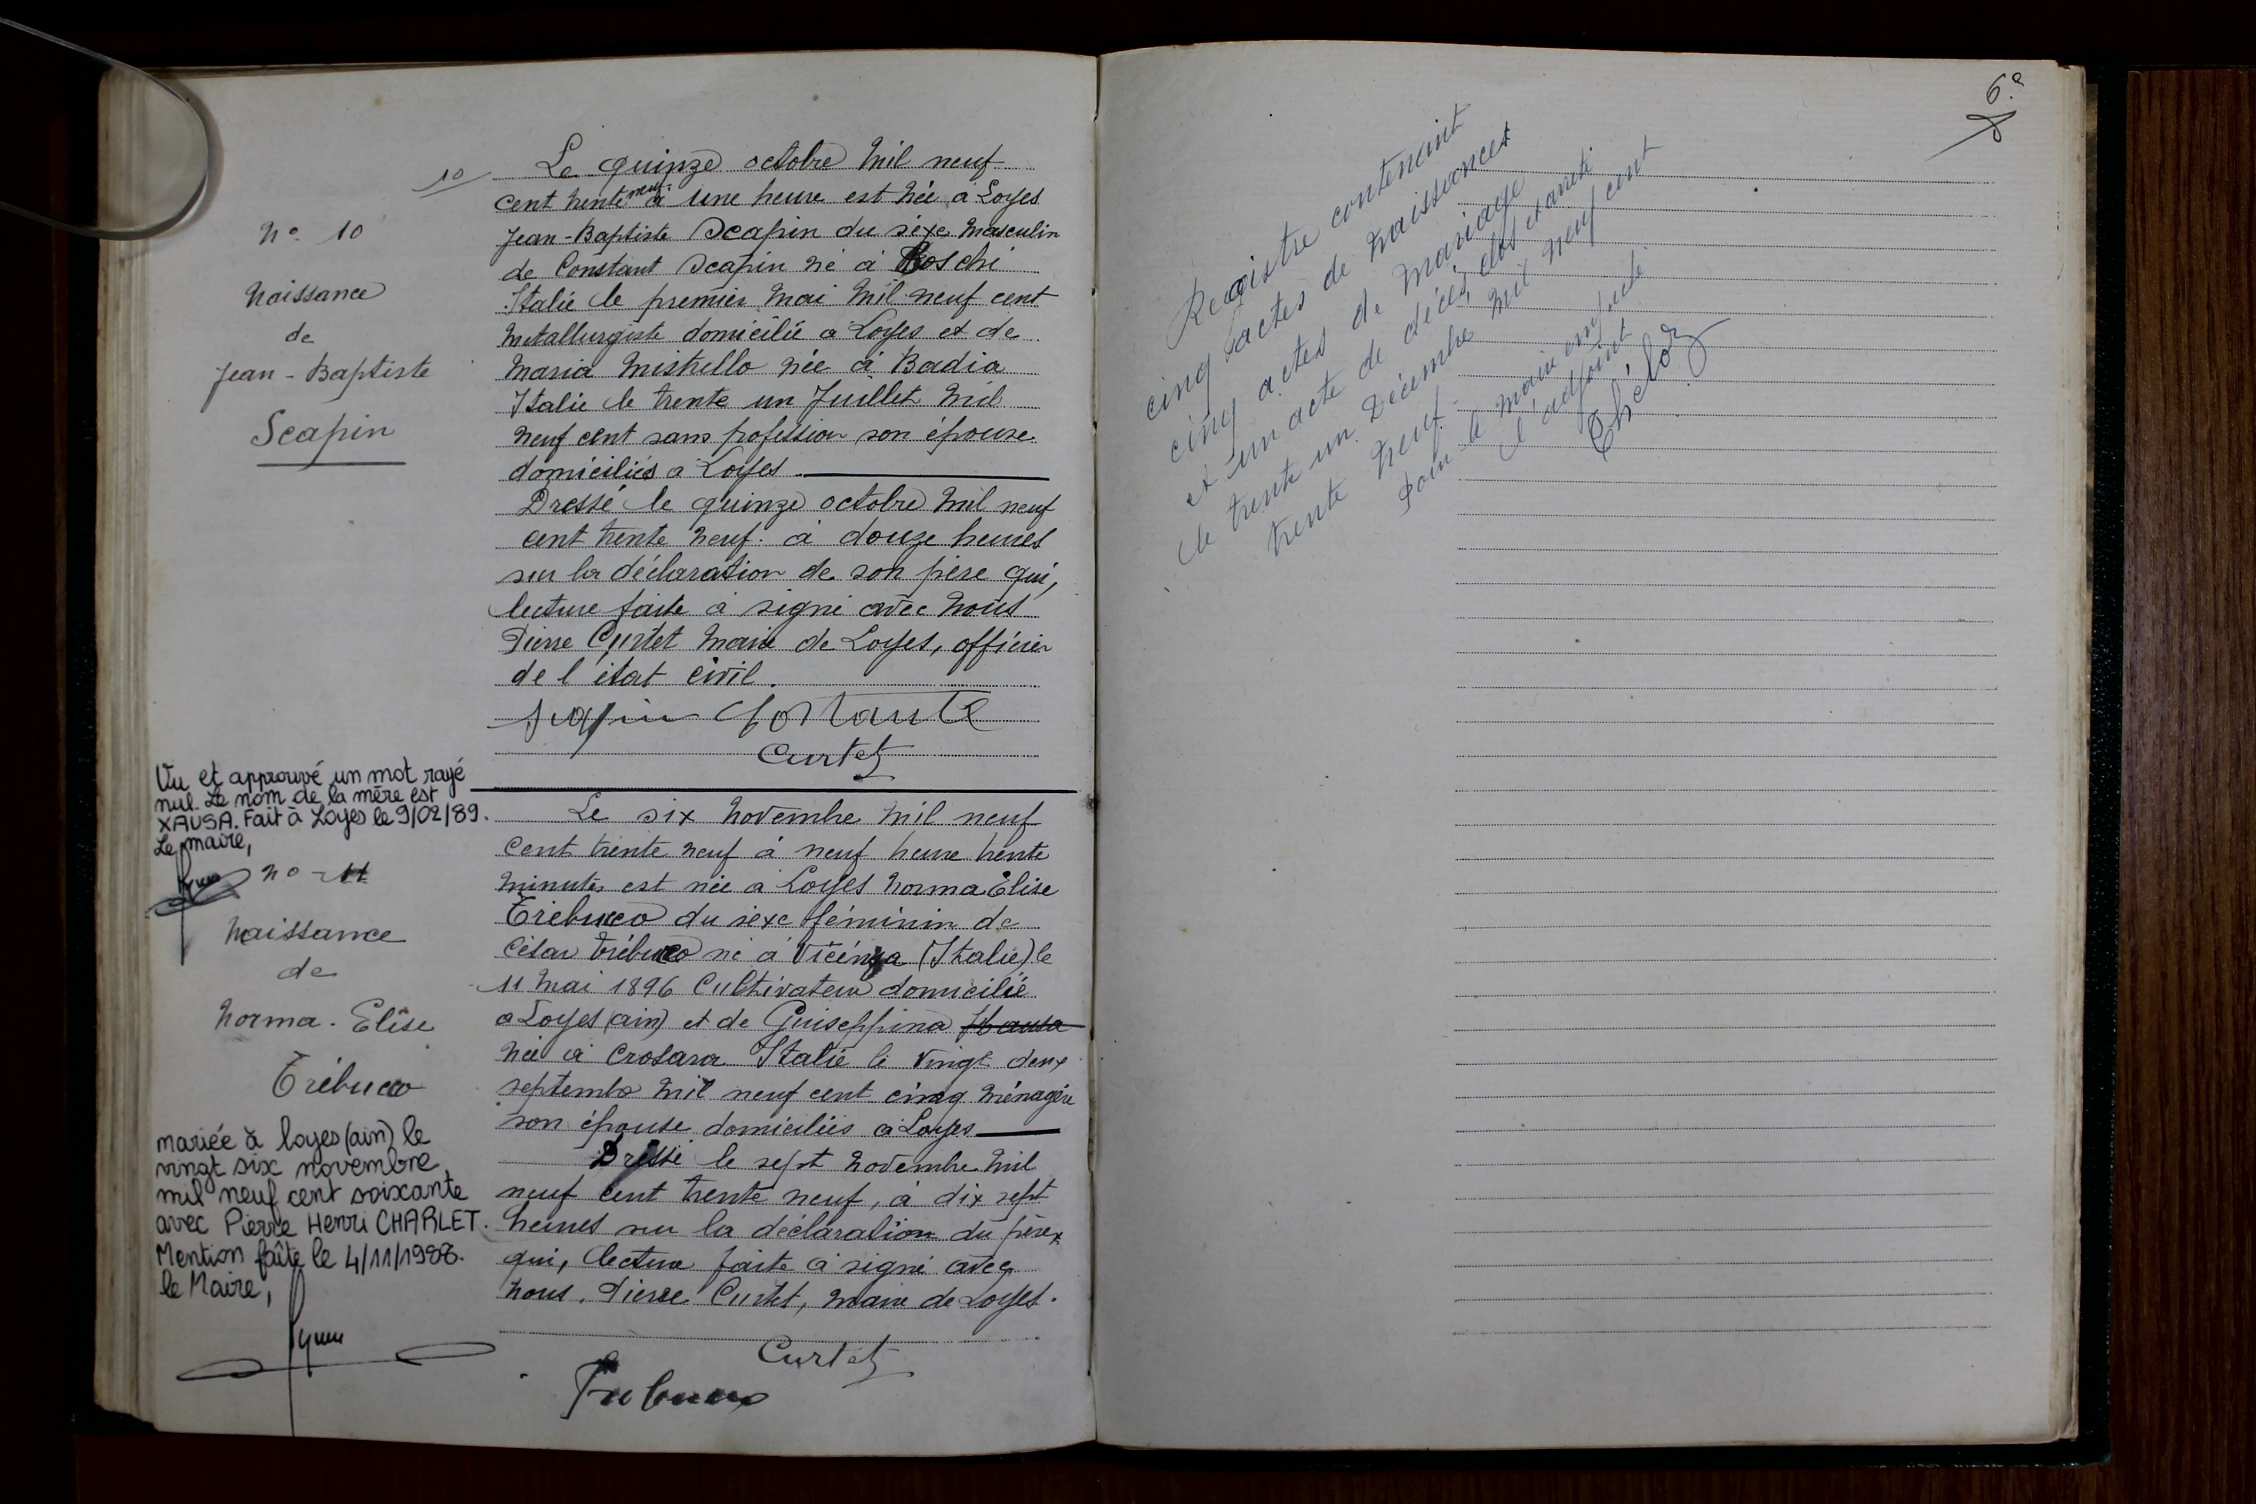 10
N° 10
Naissance
de
Jean-Baptiste
Scapin
Le quinze octobre mil neuf
cent trente neuf à une heure est née à Loyes
Jean-Baptiste Scapin du sexe masculin
de Constant Scapin né à Boschi
Italie le premier mai mil neuf cent
metallurgiste domicilié à Loyes et de
Maria Mistrello née à Badia
Italie le trente un Juillet mil
neuf cent sans profession son épouse
domiciliés à Loyes.
Dressé le quinze octobre mil neuf
cent trente neuf. à douze heures
sur la déclaration de son père qui,
lecture faite à signé avec nous
Pierre Curtet maire de Loyes, officier
de l'état civil.
Scapin Costante
Curtet
Vu et approuvé un mot rayé
nul. Le nom de la mère est
XAUSA. Fait à Loyes le 9/02/89.
Le maire,
N° 11
Naissance
de
Norma-Elise
Trébucco
mariée à loyes (ain) le
vingt six novembre
mil neuf cent soixante
avec Pierre Henri CHARLET.
Mention faîte le 4/11/1988.
le Maire,
Le six novembre mil neuf
cent trente neuf à neuf heure trente
minutes est née à Loyes Norma Elise
Trébucco du sexe féminin de
César Trébucco né à Vicénza (Italie) le
11 mai 1896 Cultivateur domicilié
à Loyes (ain) et de Guiseppina Hausa
née à Crosara Italie le vingt deux
septembre mil neuf cent cinq ménagère
son épouse domiciliés à Loyes
Dressé le sept novembre mil
neuf cent trente neuf, à dix sept
heures sur la déclaration du père
qui, lecture faite à signé avec
nous. Pierre Curtet, maire de Loyes.
Curtet
Trebucco
6e
Registre contenant
cinq actes de naissances
cinq actes de mariage
et un acte de décès, clos et arrêté
le trente un Décembre mil neuf cent
trente neuf.
Pour le maire empêché
l'adjoint